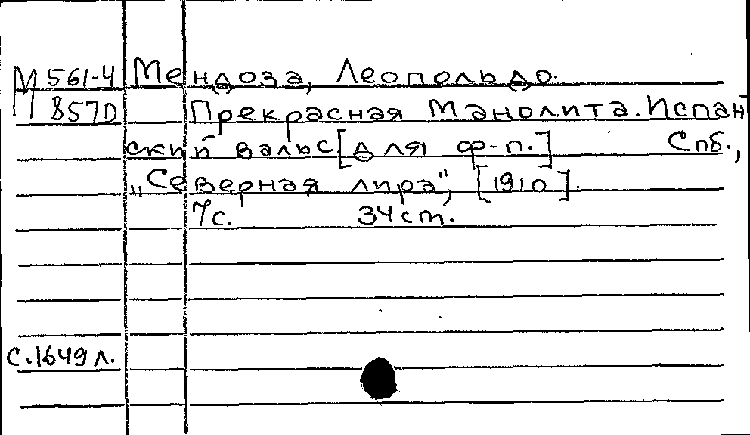 М 561-4 Мендоза, Леопольдо.
М 857D Прекрасная Манолита. Испан
ский вальс [для ф-п.] Спб.,
„Северная лира", [1910].
7с. 34 ст.
С.1649 л.